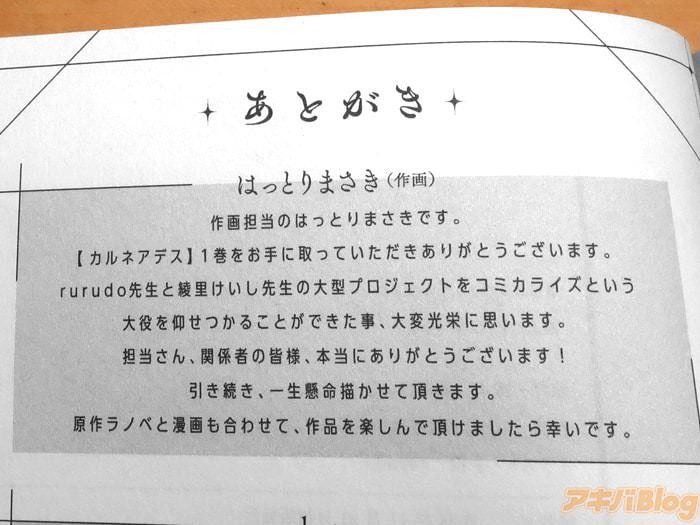 あとがき
はっとりまさき（作画）
作画担当のはっとりまさきです。
【カルネアデス】1巻をお手に取っていただきありがとうございます。
rurudo先生と綾里けいし先生の大型プロジェクトをコミカライズという
大役を仰せつかることができた事、大変光栄に思います。
担当さん、関係者の皆様、本当にありがとうございます！
引き続き、一生懸命描かせて頂きます。
原作ラノベと漫画も合わせて、作品を楽しんで頂けましたら幸いです。
アキバBlog